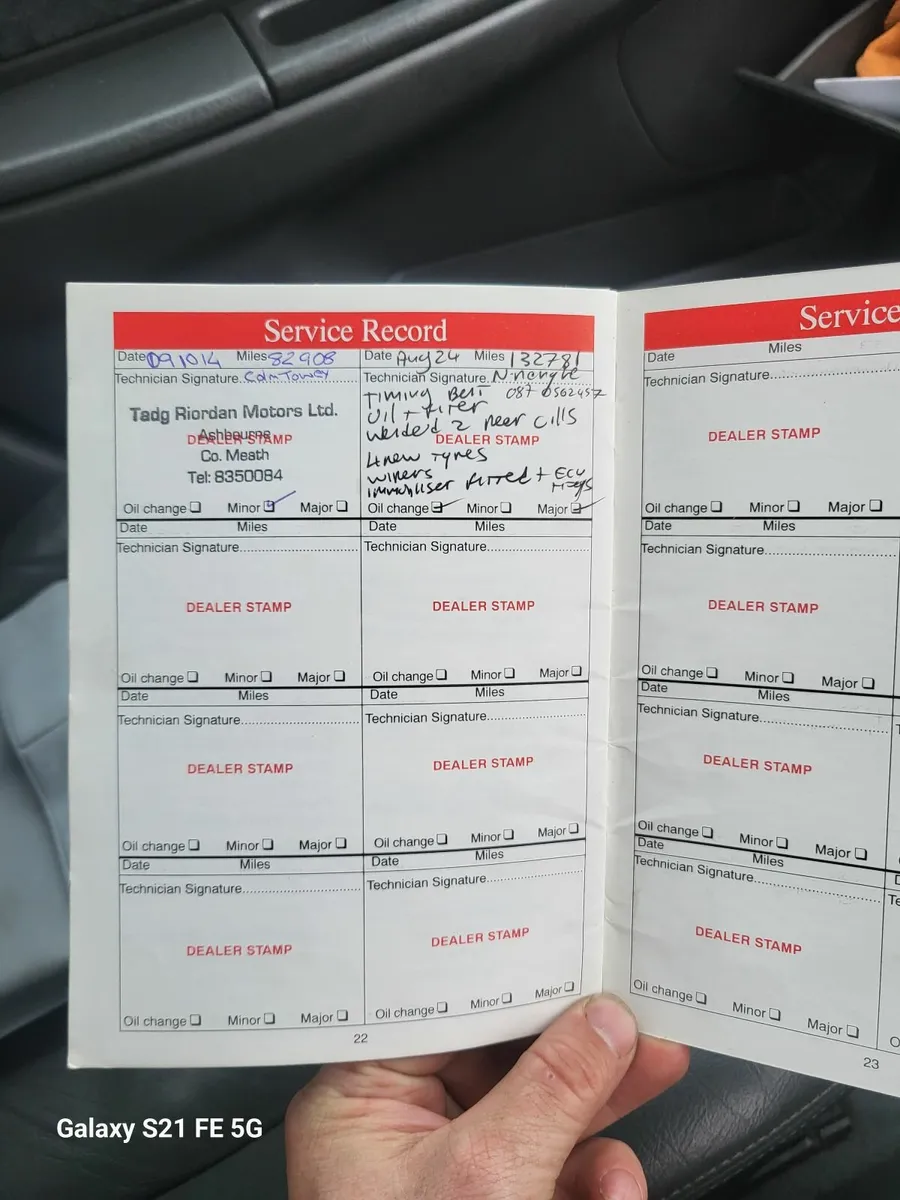 Service Record
Date 091014 Miles 82908
Technician Signature. Colm Towey
Tadg Riordan Motors Ltd.
Ashbourne
DEALER STAMP
Co. Meath
Tel: 8350084
Oil change Minor Major
Date Aug 24 Miles 132781
Technician Signature.
Timing Belt 087 0562457
Oil + Filter
Welded 2 rear cills
DEALER STAMP
4 new Tyres
Wipers
Immobiliser fitted + ECU
Oil change Minor Major
Date Miles
Technician Signature
DEALER STAMP
Oil change Minor Major
Date Miles
Technician Signature
DEALER STAMP
Oil change Minor Major
Date Miles
Technician Signature
DEALER STAMP
Oil change Minor Major
Date Miles
Technician Signature
DEALER STAMP
Oil change Minor Major
Date Miles
Technician Signature
DEALER STAMP
Oil change Minor Major
Date Miles
Technician Signature
DEALER STAMP
Oil change Minor Major
22
Service
Date Miles
Technician Signature
DEALER STAMP
Oil change Minor Major
Date Miles
Technician Signature
DEALER STAMP
Oil change Minor Major
Date Miles
Technician Signature
DEALER STAMP
Oil change Minor Major
Date Miles
Technician Signature
DEALER STAMP
Oil change Minor Major
23
Galaxy S21 FE 5G